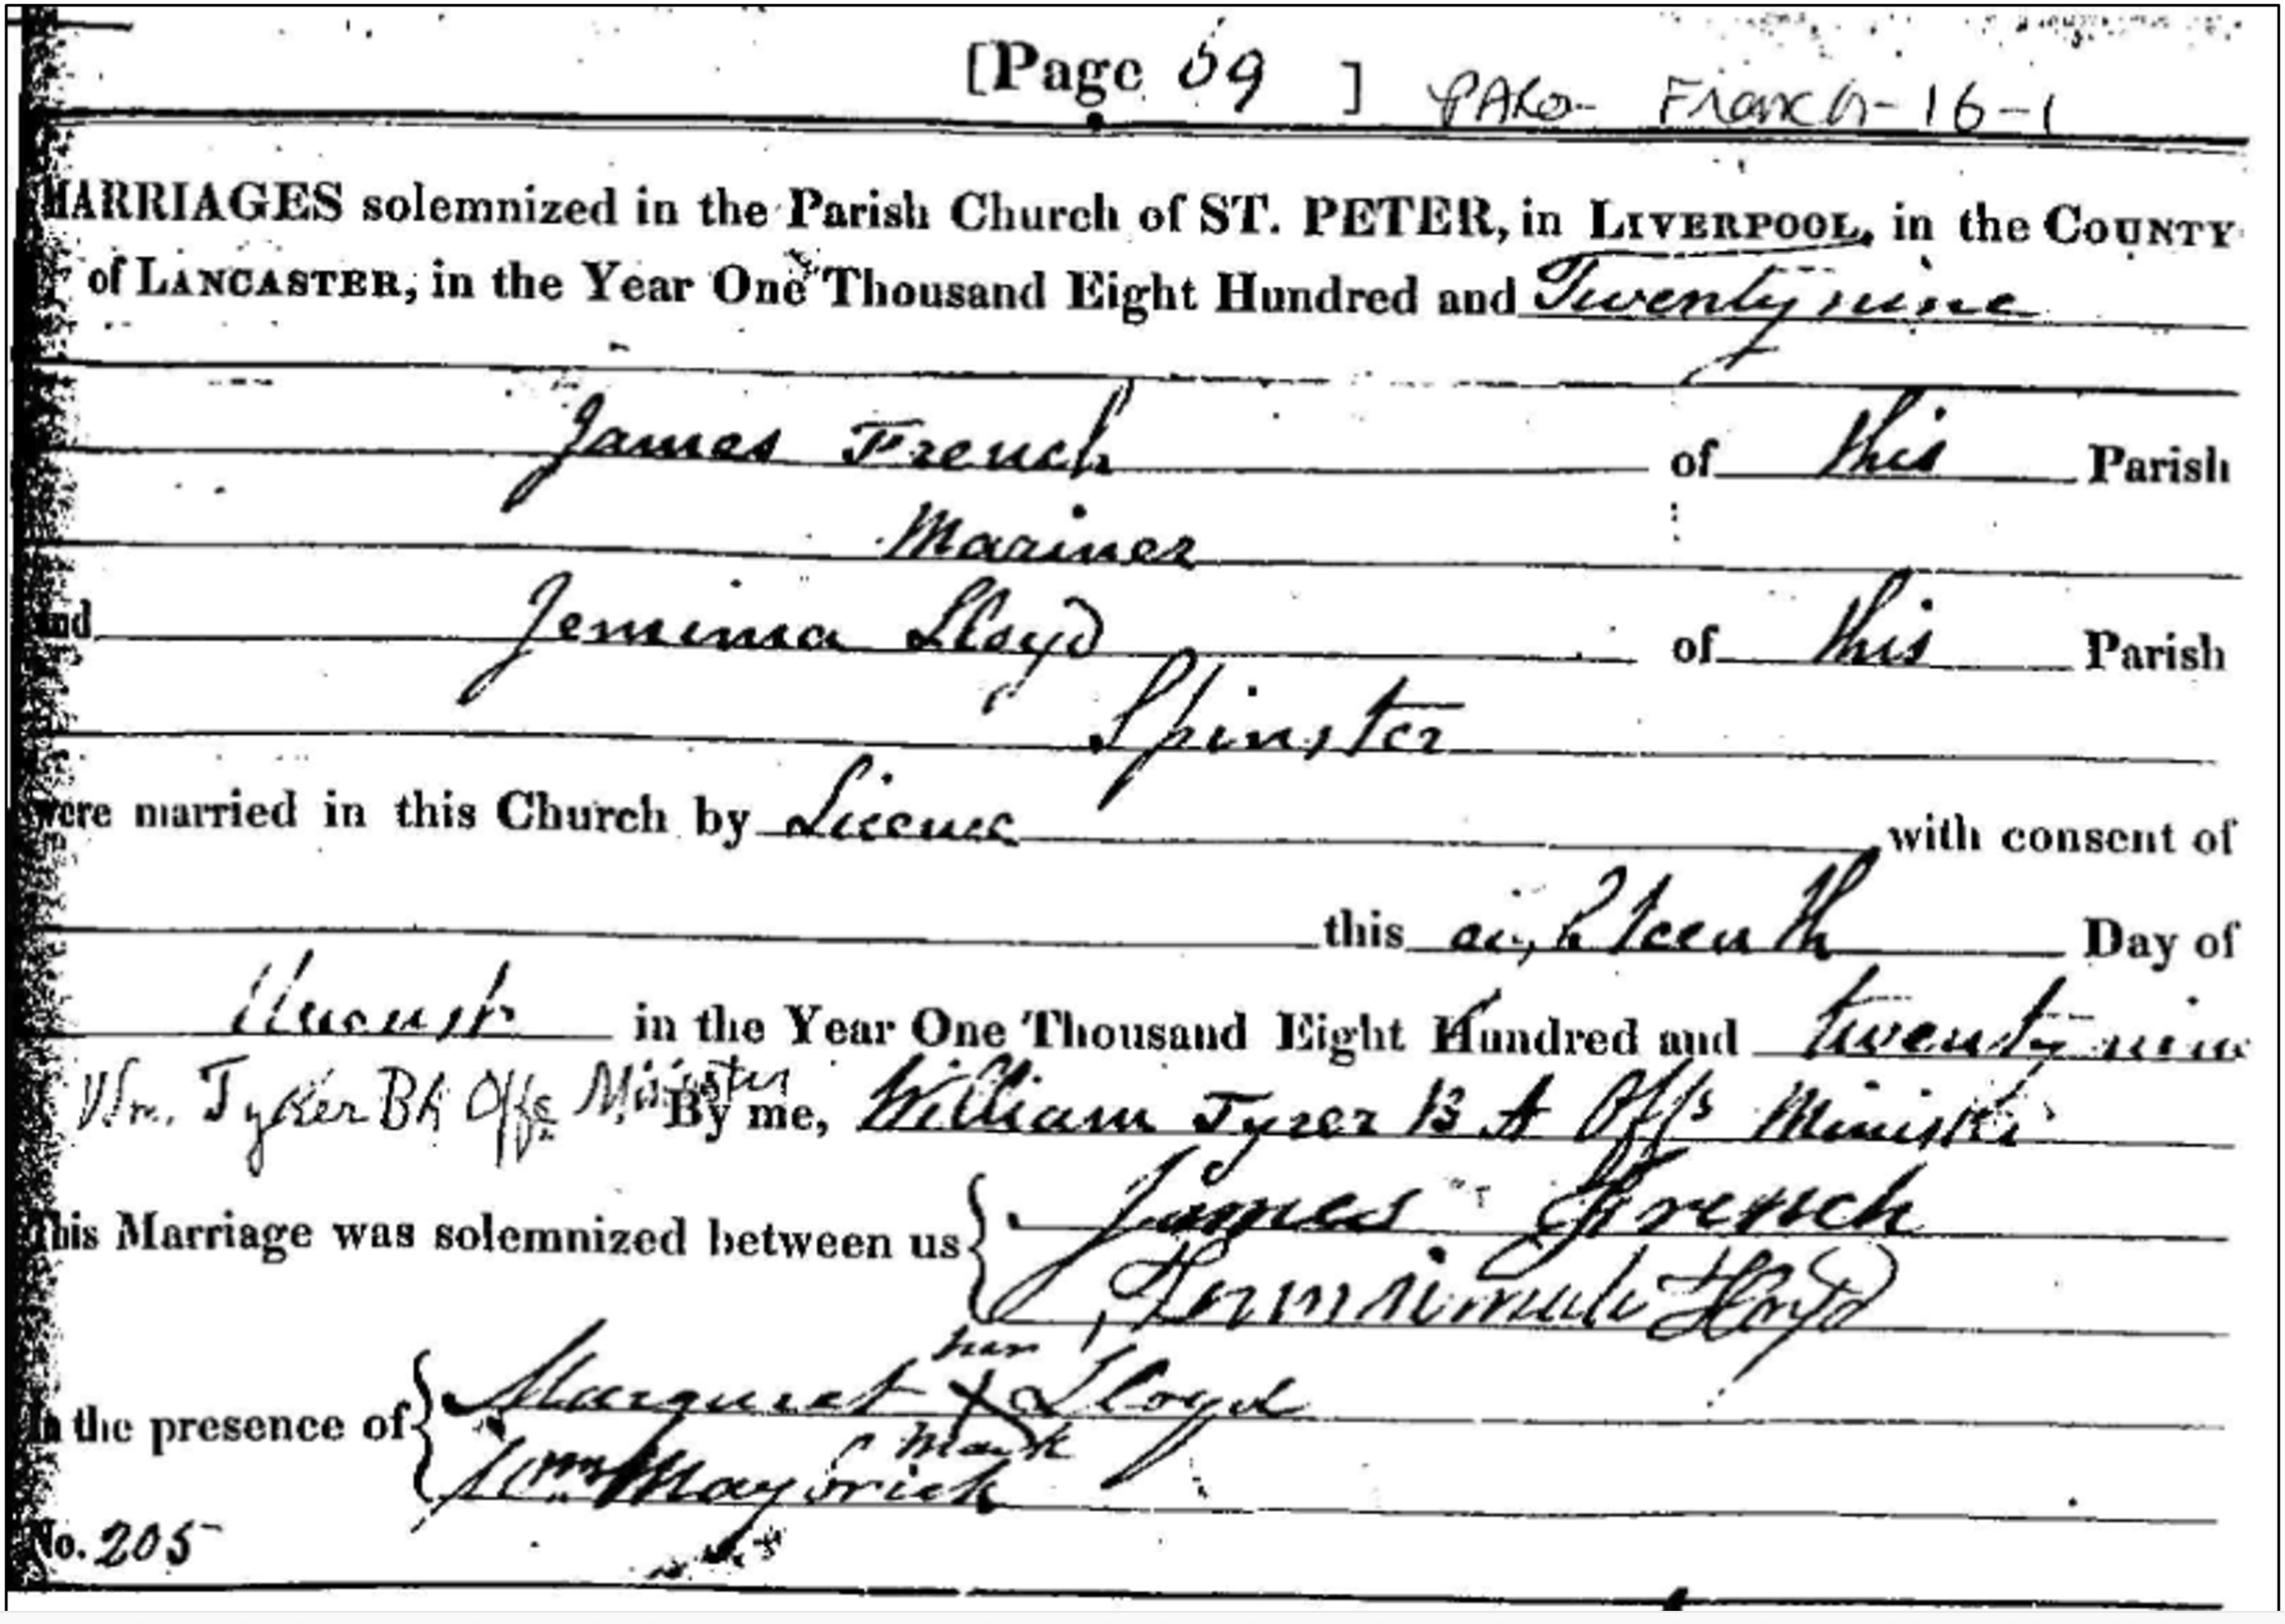 [Page 69 ] French-16-1
MARRIAGES solemnized in the Parish Church of ST. PETER, in LIVERPOOL, in the COUNTY
of LANCASTER, in the Year One Thousand Eight Hundred and Twenty nine
James French of this Parish
Mariner
and Jemima Lloyd of this Parish
Spinster
were married in this Church by Licence with consent of
this eighteenth Day of
August in the Year One Thousand Eight Hundred and twenty nine
Wm. Tyrer BA Offg Minister By me, William Tyrer B A Offg Minister
This Marriage was solemnized between us { James French
Lloyd
her
In the presence of { Margaret X Lloyd
Mark
Wm Maybrick
No. 205